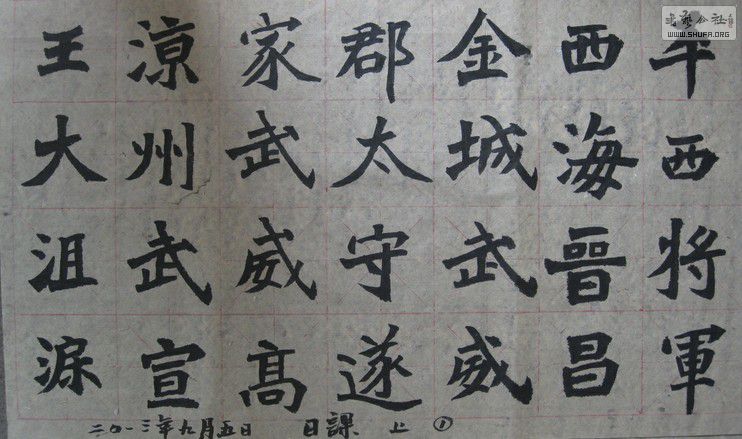 平西将軍
西海晉昌
金城武威
郡太守遂
家武威高
涼州武宣
王大沮渠
二〇一三年九月五日 日課 上 ①
书艺公社
WWW.SHUFA.ORG